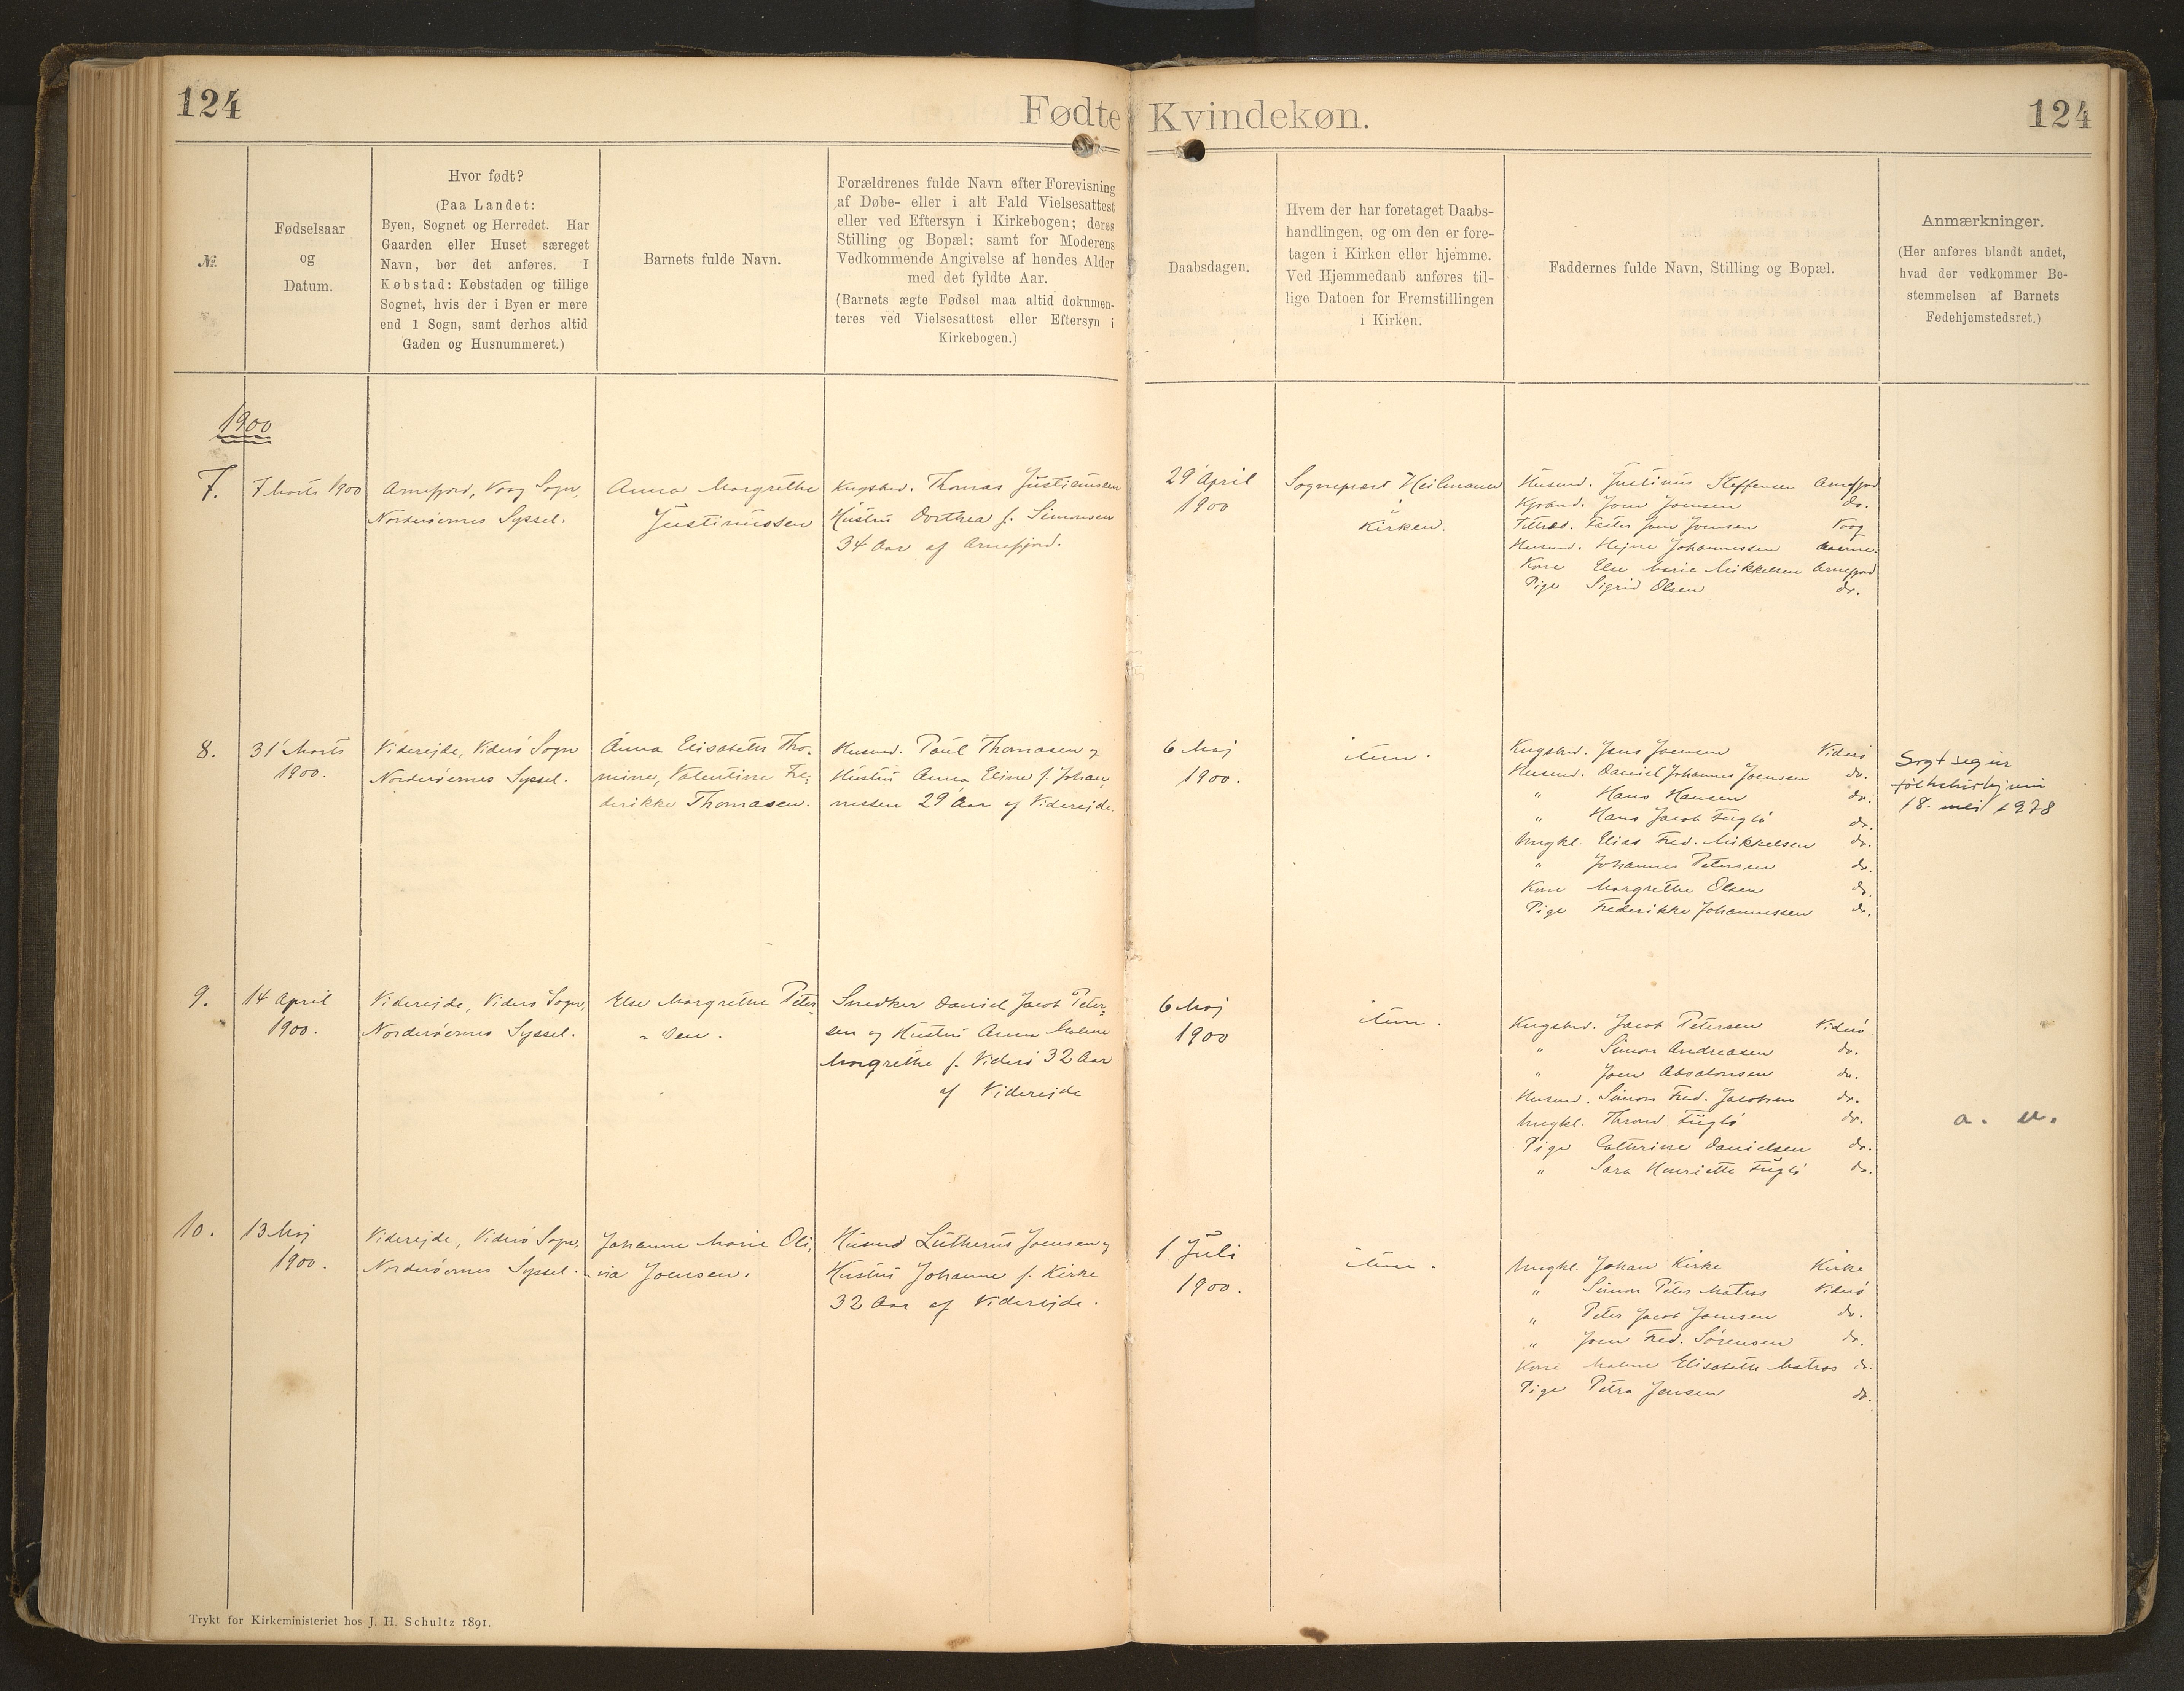 124
Fødte Kvindekøn.
124
№
Fødselsaar
og
Datum.
Hvor født?
(Paa Landet:
Byen, Sognet og Herredet. Har
Gaarden eller Huset særeget
Navn, bør det anføres. I
Købstad: Købstaden og tillige
Sognet, hvis der i Byen er mere
end 1 Sogn, samt derhos altid
Gaden og Husnummeret.)
Barnets fulde Navn.
Forældrenes fulde Navn efter Forevisning
af Døbe- eller i alt Fald Vielsesattest
eller ved Eftersyn i Kirkebogen; deres
Stilling og Bopæl; samt for Moderens
Vedkommende Angivelse af hendes Alder
med det fyldte Aar.
(Barnets ægte Fødsel maa altid dokumen-
teres ved Vielsesattest eller Eftersyn i
Kirkebogen.)
Daabsdagen.
Hvem der har foretaget Daabs-
handlingen, og om den er fore-
tagen i Kirken eller hjemme.
Ved Hjemmedaab anføres til-
lige Datoen for Fremstillingen
i Kirken.
Faddernes fulde Navn, Stilling og Bopæl.
Anmærkninger.
(Her anføres blandt andet,
hvad der vedkommer Be-
stemmelsen af Barnets
Fødehjemstedsret.)
1900
7.
7 Marts 1900
Arnefjord, Vaag Sogn,
Norderøernes Syssel.
Anna Margrethe
Justinussen
Kngsbd. Thomas Justinussen
Hustru Dorthea f. Simonsen
34 Aar af Arnefjord.
29 April
1900
Sognepræst Heilmann
i
Kirken.
Husmd. Justinus Steffensen Arnefjord
Joen Joensen do.
Joen Joensen Vaag
Husmd. Hejne Johannessen
Kone Else Marie Mikkelsen Arnefjord
Pige Sigrid Olsen do.
8.
31 Marts
1900.
Viderejde, Viderø Sogn
Norderøernes Syssel.
Anna Elisabeth Tho-
mine, Valentine Fre-
derikke Thomasen.
Husmd. Poul Thomasen og
Hustru Anna Eline f. Johan-
nessen 29 Aar af Viderejde.
6 Maj
1900.
item.
Kngsbd. Jens Joensen Viderø
Husmd. Daniel Johannes Joensen do.
" Hans Hansen do.
" Hans Jacob Fuglø do.
Ungkl. Elias Fred. Mikkelsen do.
" Johannes Petersen do.
Kone Margrethe Olsen do.
Pige Frederikke Johannessen do.
Sagt seg úr
fólkakirkjuni
18. mei 1978
9.
14 April
1900.
Viderejde, Viderø Sogn,
Norderøernes Syssel.
Else Margrethe Peter-
- sen.
Snedker Daniel Jacob Peter-
sen og Hustru Anna Malene
Margrethe f. Viderø 32 Aar
af Viderejde
6 Maj
1900
item.
Kngsbd. Jacob Petersen Viderø
" Simon Andreasen do.
" Joen Absalonsen do.
Husmd. Simon Fred. Jacobsen do.
Ungkl. Thrond Fuglø do.
Pige Cathrine Danielsen do.
" Sara Henriette Fuglø do.
a. u.
10.
13 Maj
1900.
Viderejde, Viderø Sogn,
Norderøernes Syssel.
Johanne Marie Oli-
via Joensen.
Husmd Lutherus Joensen og
Hustru Johanne f. Kirke
32 Aar af Viderejde.
1 Juli
1900.
item.
Ungkl. Johan Kirke Kirke
" Simon Peter Matras Viderø
" Peter Jacob Joensen do.
" Joen Fred. Sørensen do.
Kone Malene Elisabeth Matras do.
Pige Petra Jensen do.
Trykt for Kirkeministeriet hos J. H. Schultz 1891.